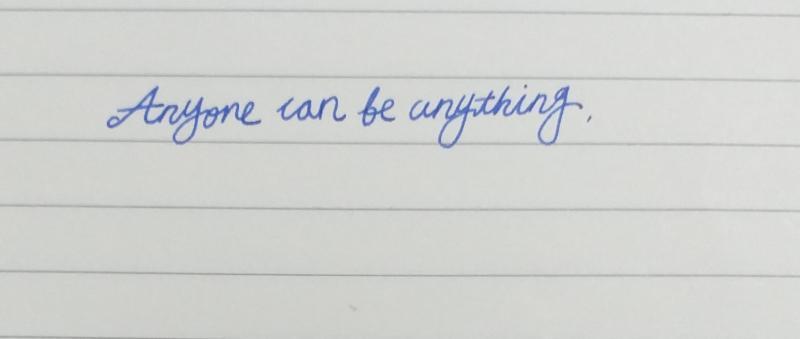 Anyone can be anything.